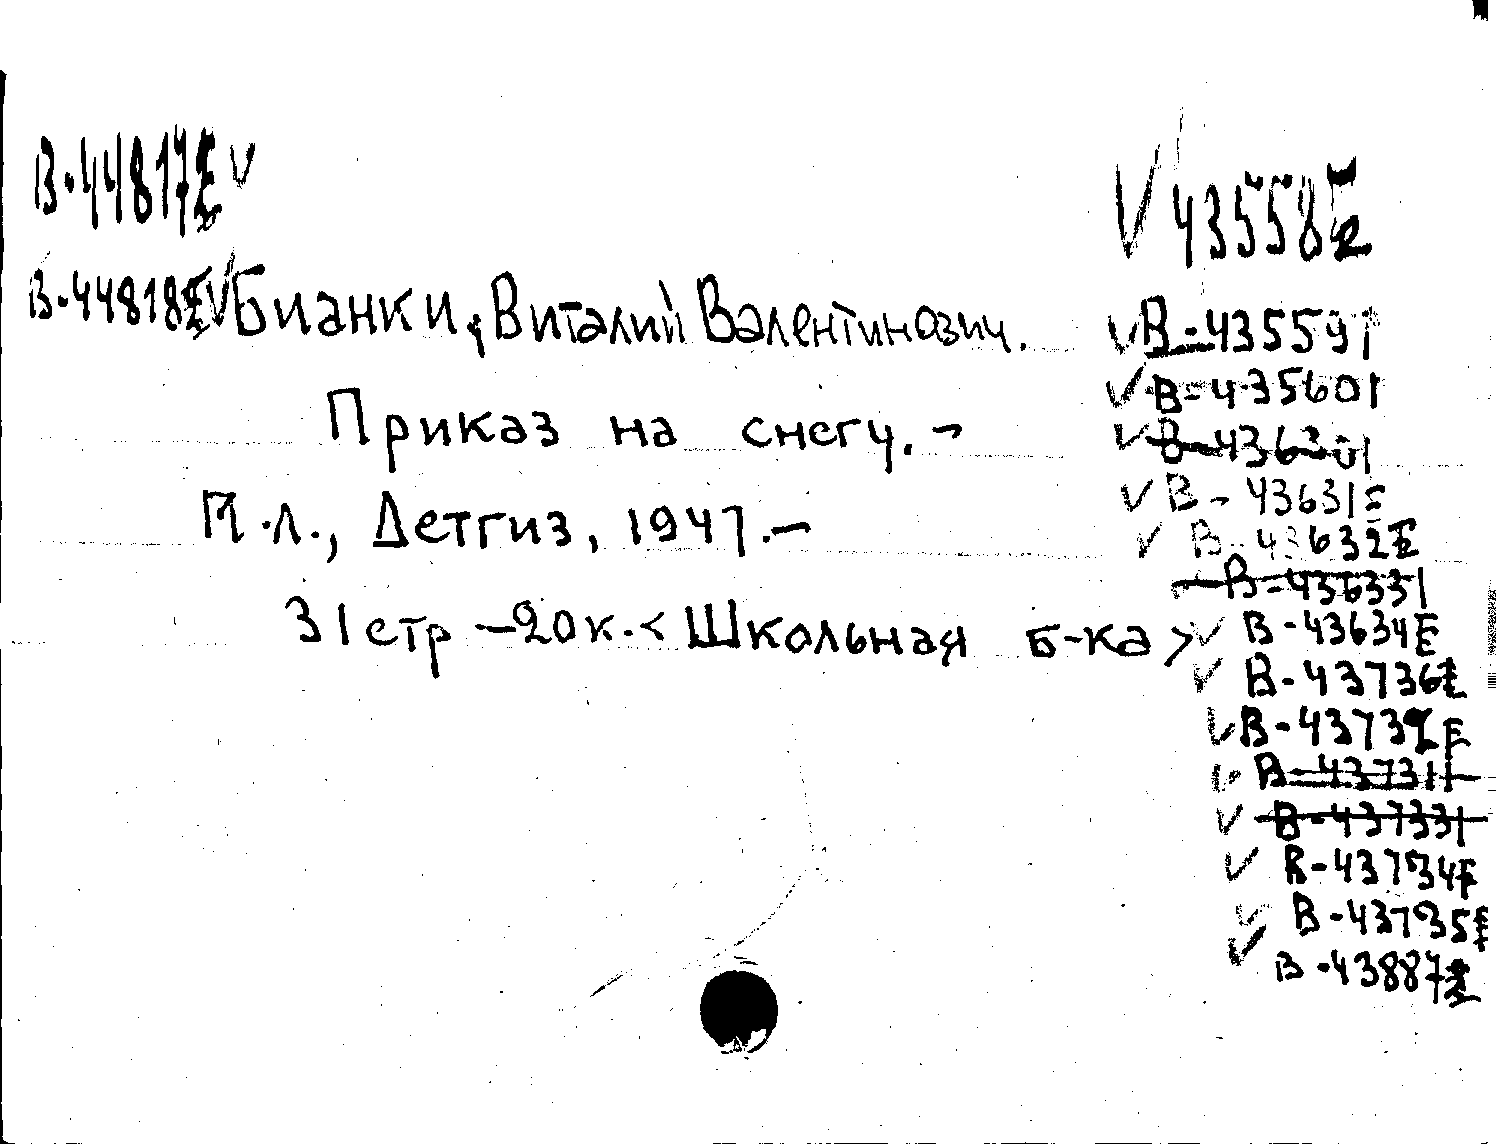 В-44817Е
В-44818Е
Бианки, Виталий Валентинович.
Приказ на снегу. -
М.-Л., Детгиз, 1947. -
31 стр - 20 к. < Школьная б-ка >
43558
В-435591
В-435601
В-436301
В-43631Е
В-43632Е
В-436331
В-43634Е
В-43736Е
В-437311
В-437331
В-43734Е
В-43735Е
В-43887